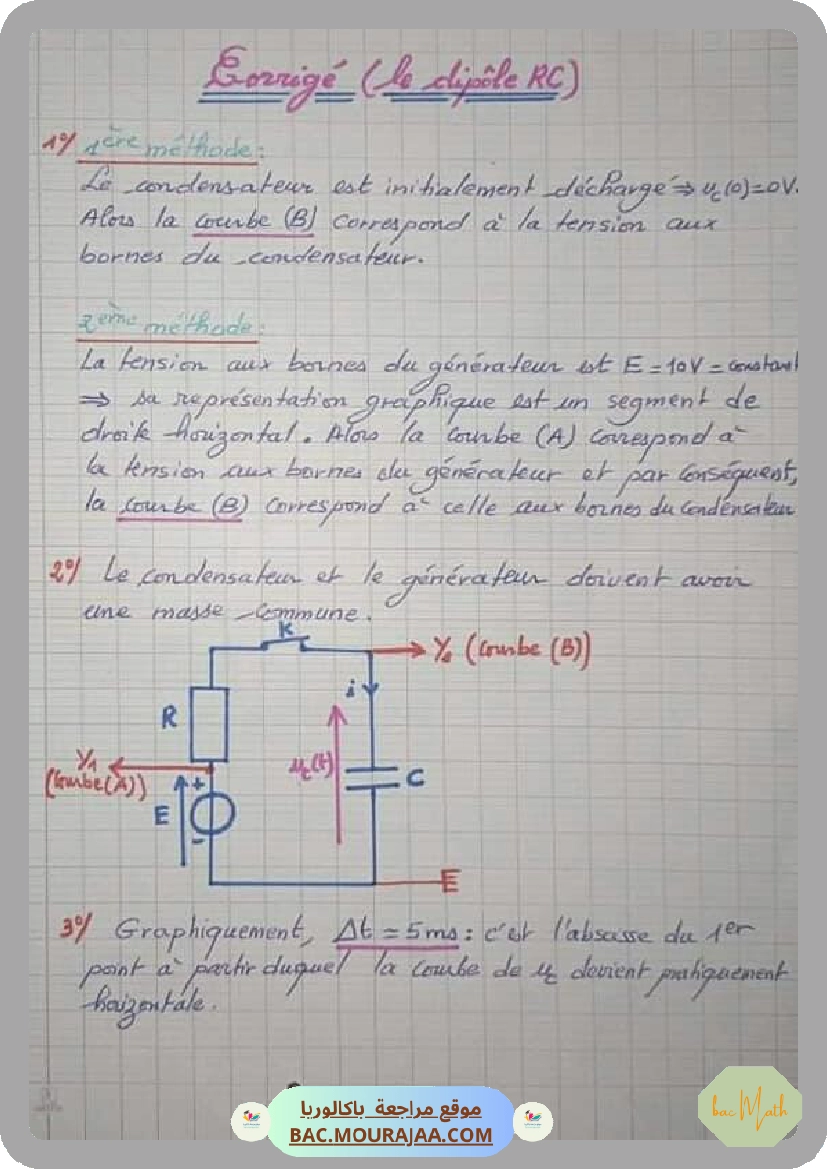 Corrigé (le dipôle RC)
1°/ 1ère méthode:
Le condensateur est initialement déchargé ⇒ uc(0)=0V.
Alors la courbe (B) correspond à la tension aux
bornes du condensateur.
2ème méthode:
La tension aux bornes du générateur est E = 10V = constant
⇒ sa représentation graphique est un segment de
droite horizontal. Alors la courbe (A) correspond à
la tension aux bornes du générateur et par conséquent,
la courbe (B) correspond à celle aux bornes du condensateur
2°/ Le condensateur et le générateur doivent avoir
une masse commune.
K
Y2 (Courbe (B))
i
R
Y1
(Courbe(A))
uc(t)
C
+
E
-
E
3°/ Graphiquement, Δt = 5ms : c'est l'abscisse du 1er
point à partir duquel la courbe de uc devient pratiquement
horizontale.
موقع مراجعة باكالوريا
BAC.MOURAJAA.COM
bac Math